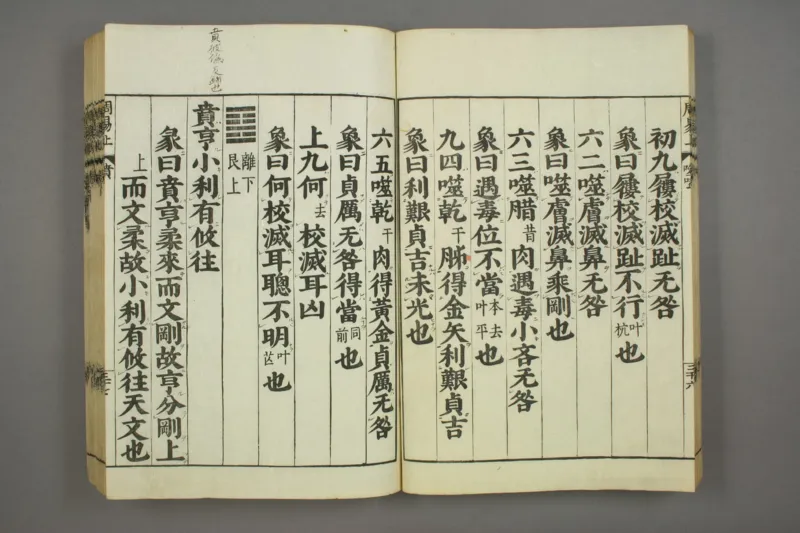 初九屨校滅趾无咎
象曰屨校滅趾不行叶杭也
六二噬膚滅鼻无咎
象曰噬膚滅鼻乘剛也
六三噬腊昔肉遇毒小吝无咎
象曰遇毒位不當本去叶平也
九四噬乾干胏得金矢利艱貞吉
象曰利艱貞吉未光也
六五噬乾干肉得黃金貞厲无咎
象曰貞厲无咎得當同前也
上九何去校滅耳凶
象曰何校滅耳聰不明叶芒也
離下
艮上
賁亨小利有攸往
彖曰賁亨柔來而文剛故亨分剛上
上而文柔故小利有攸往天文也
周易上
賁
周易上